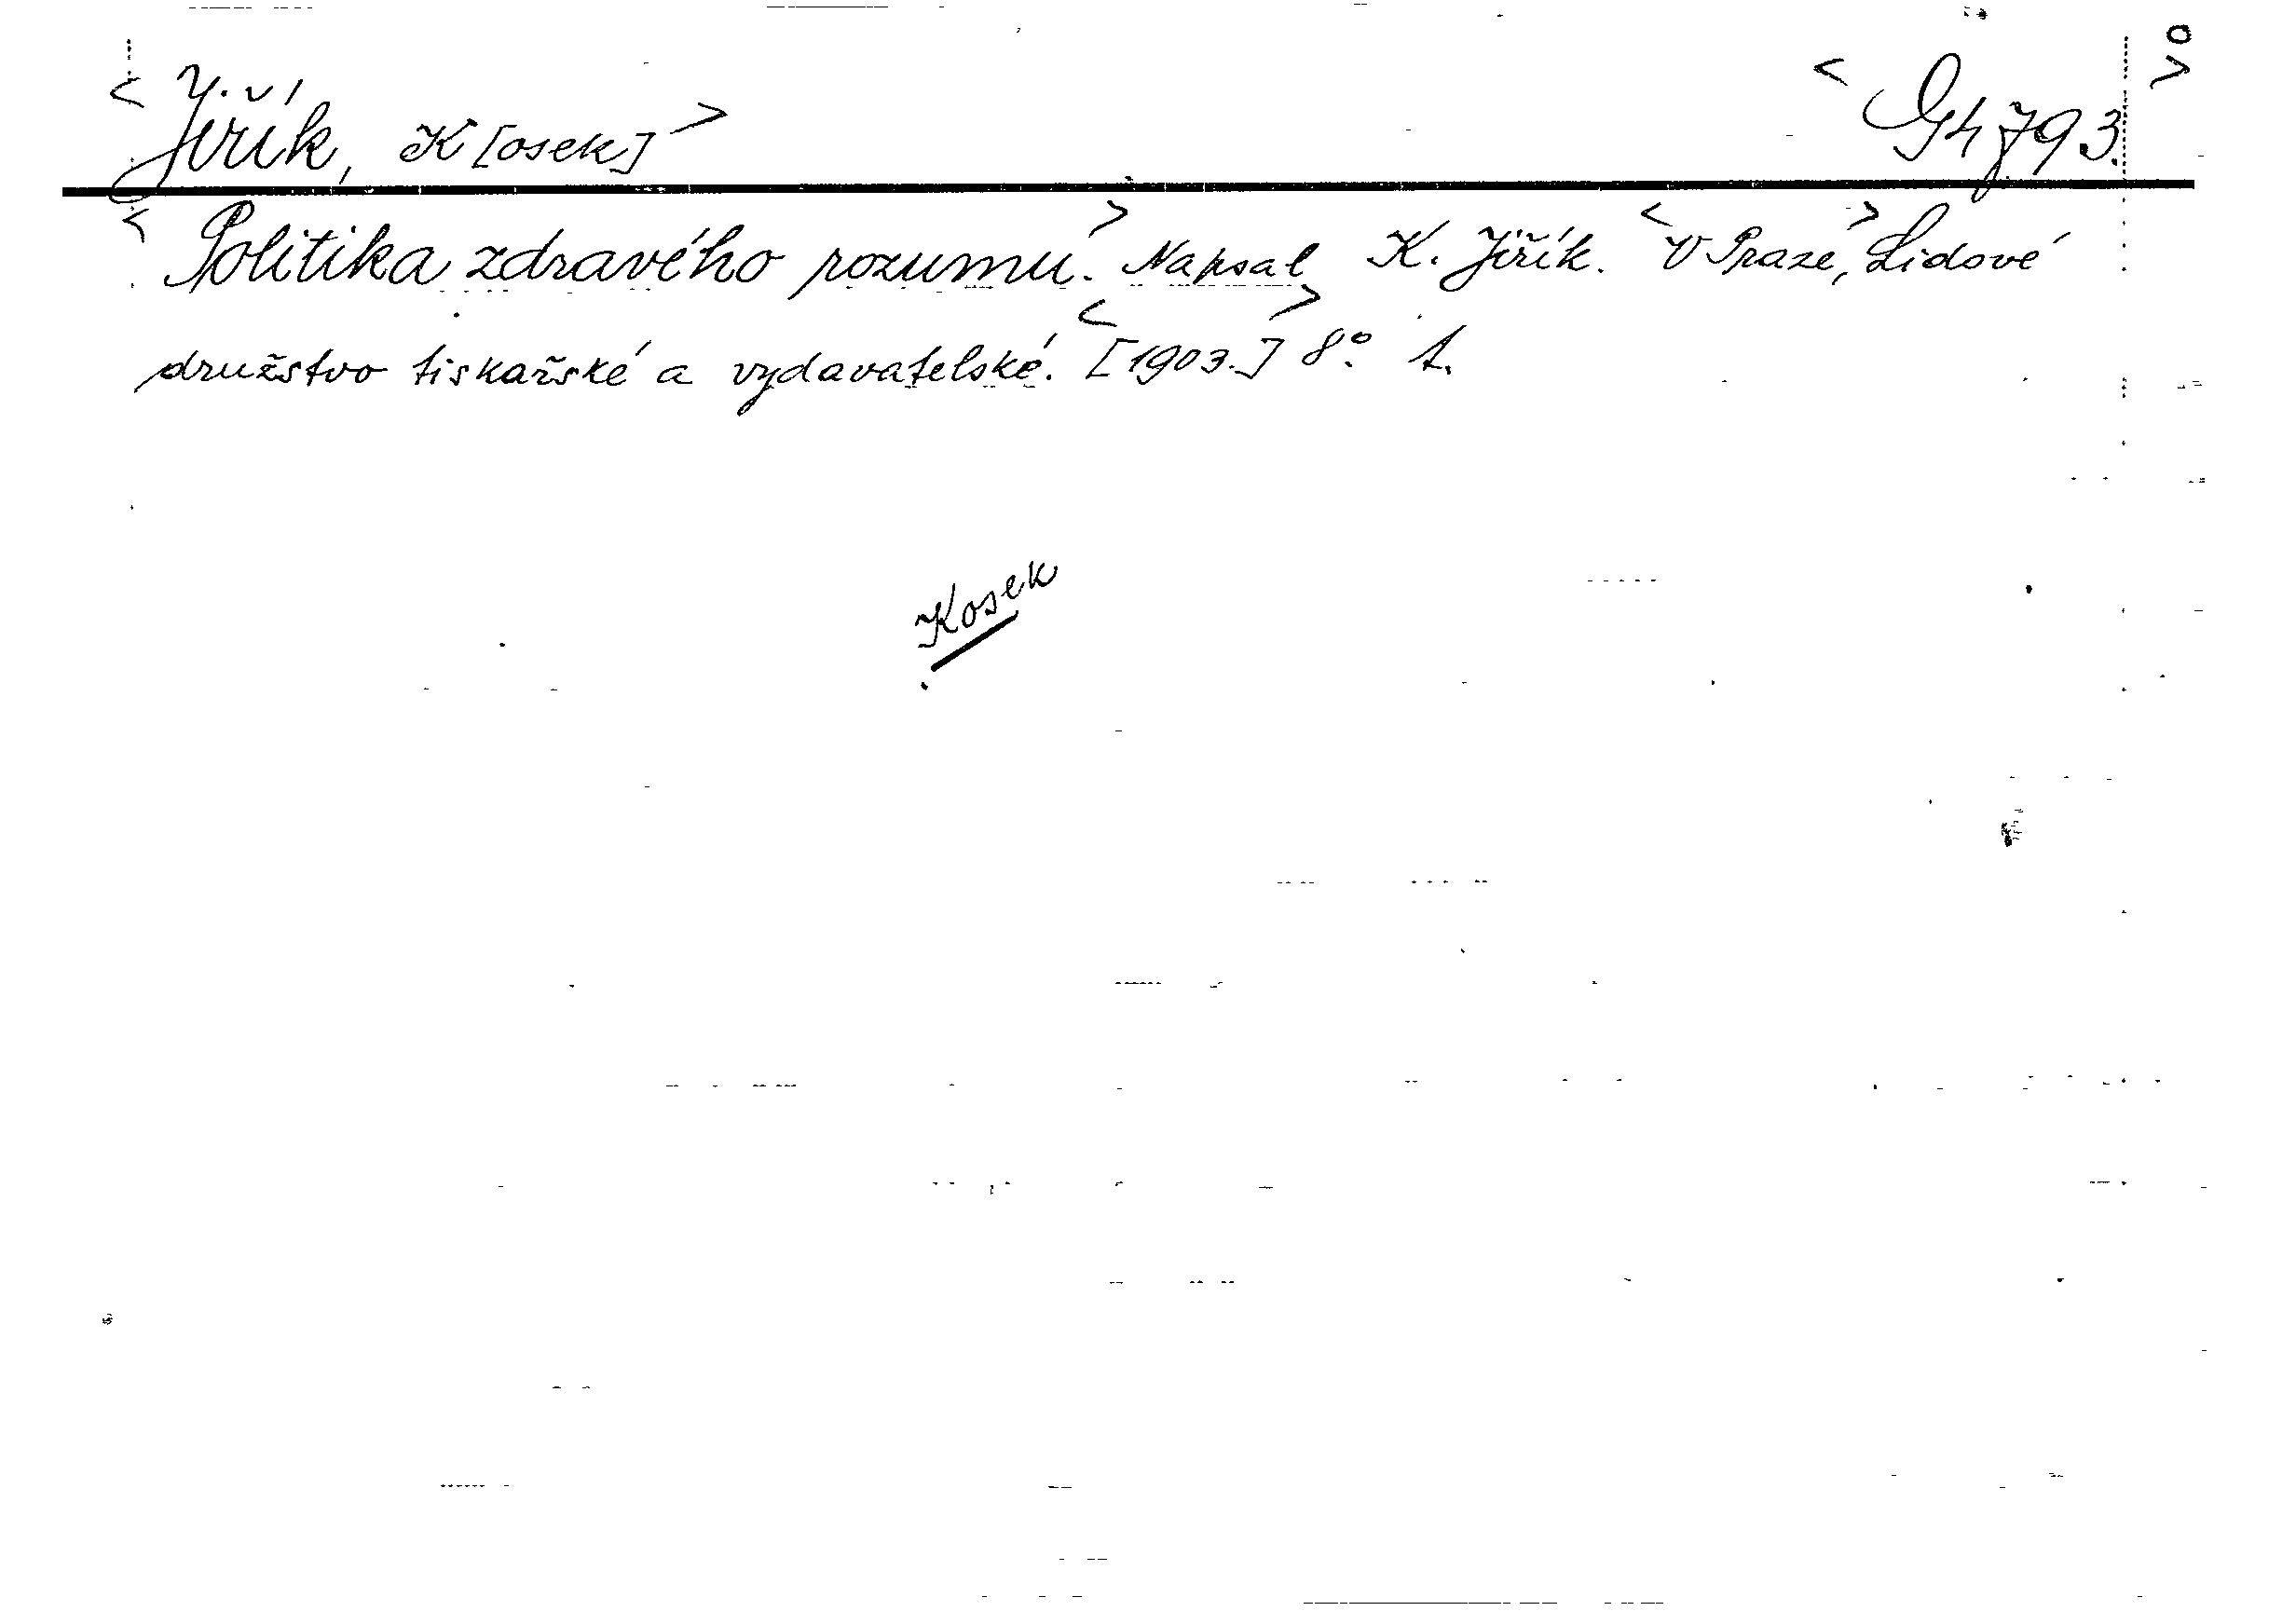 <Jiřík, K[osek]> <Gh 793.>o
<Politika zdravého rozumu.> Napsal K. Jiřík. <V Praze,> Lidové
družstvo tiskařské a vydavatelské. <[1903.]> 8°. 1.
Kosek